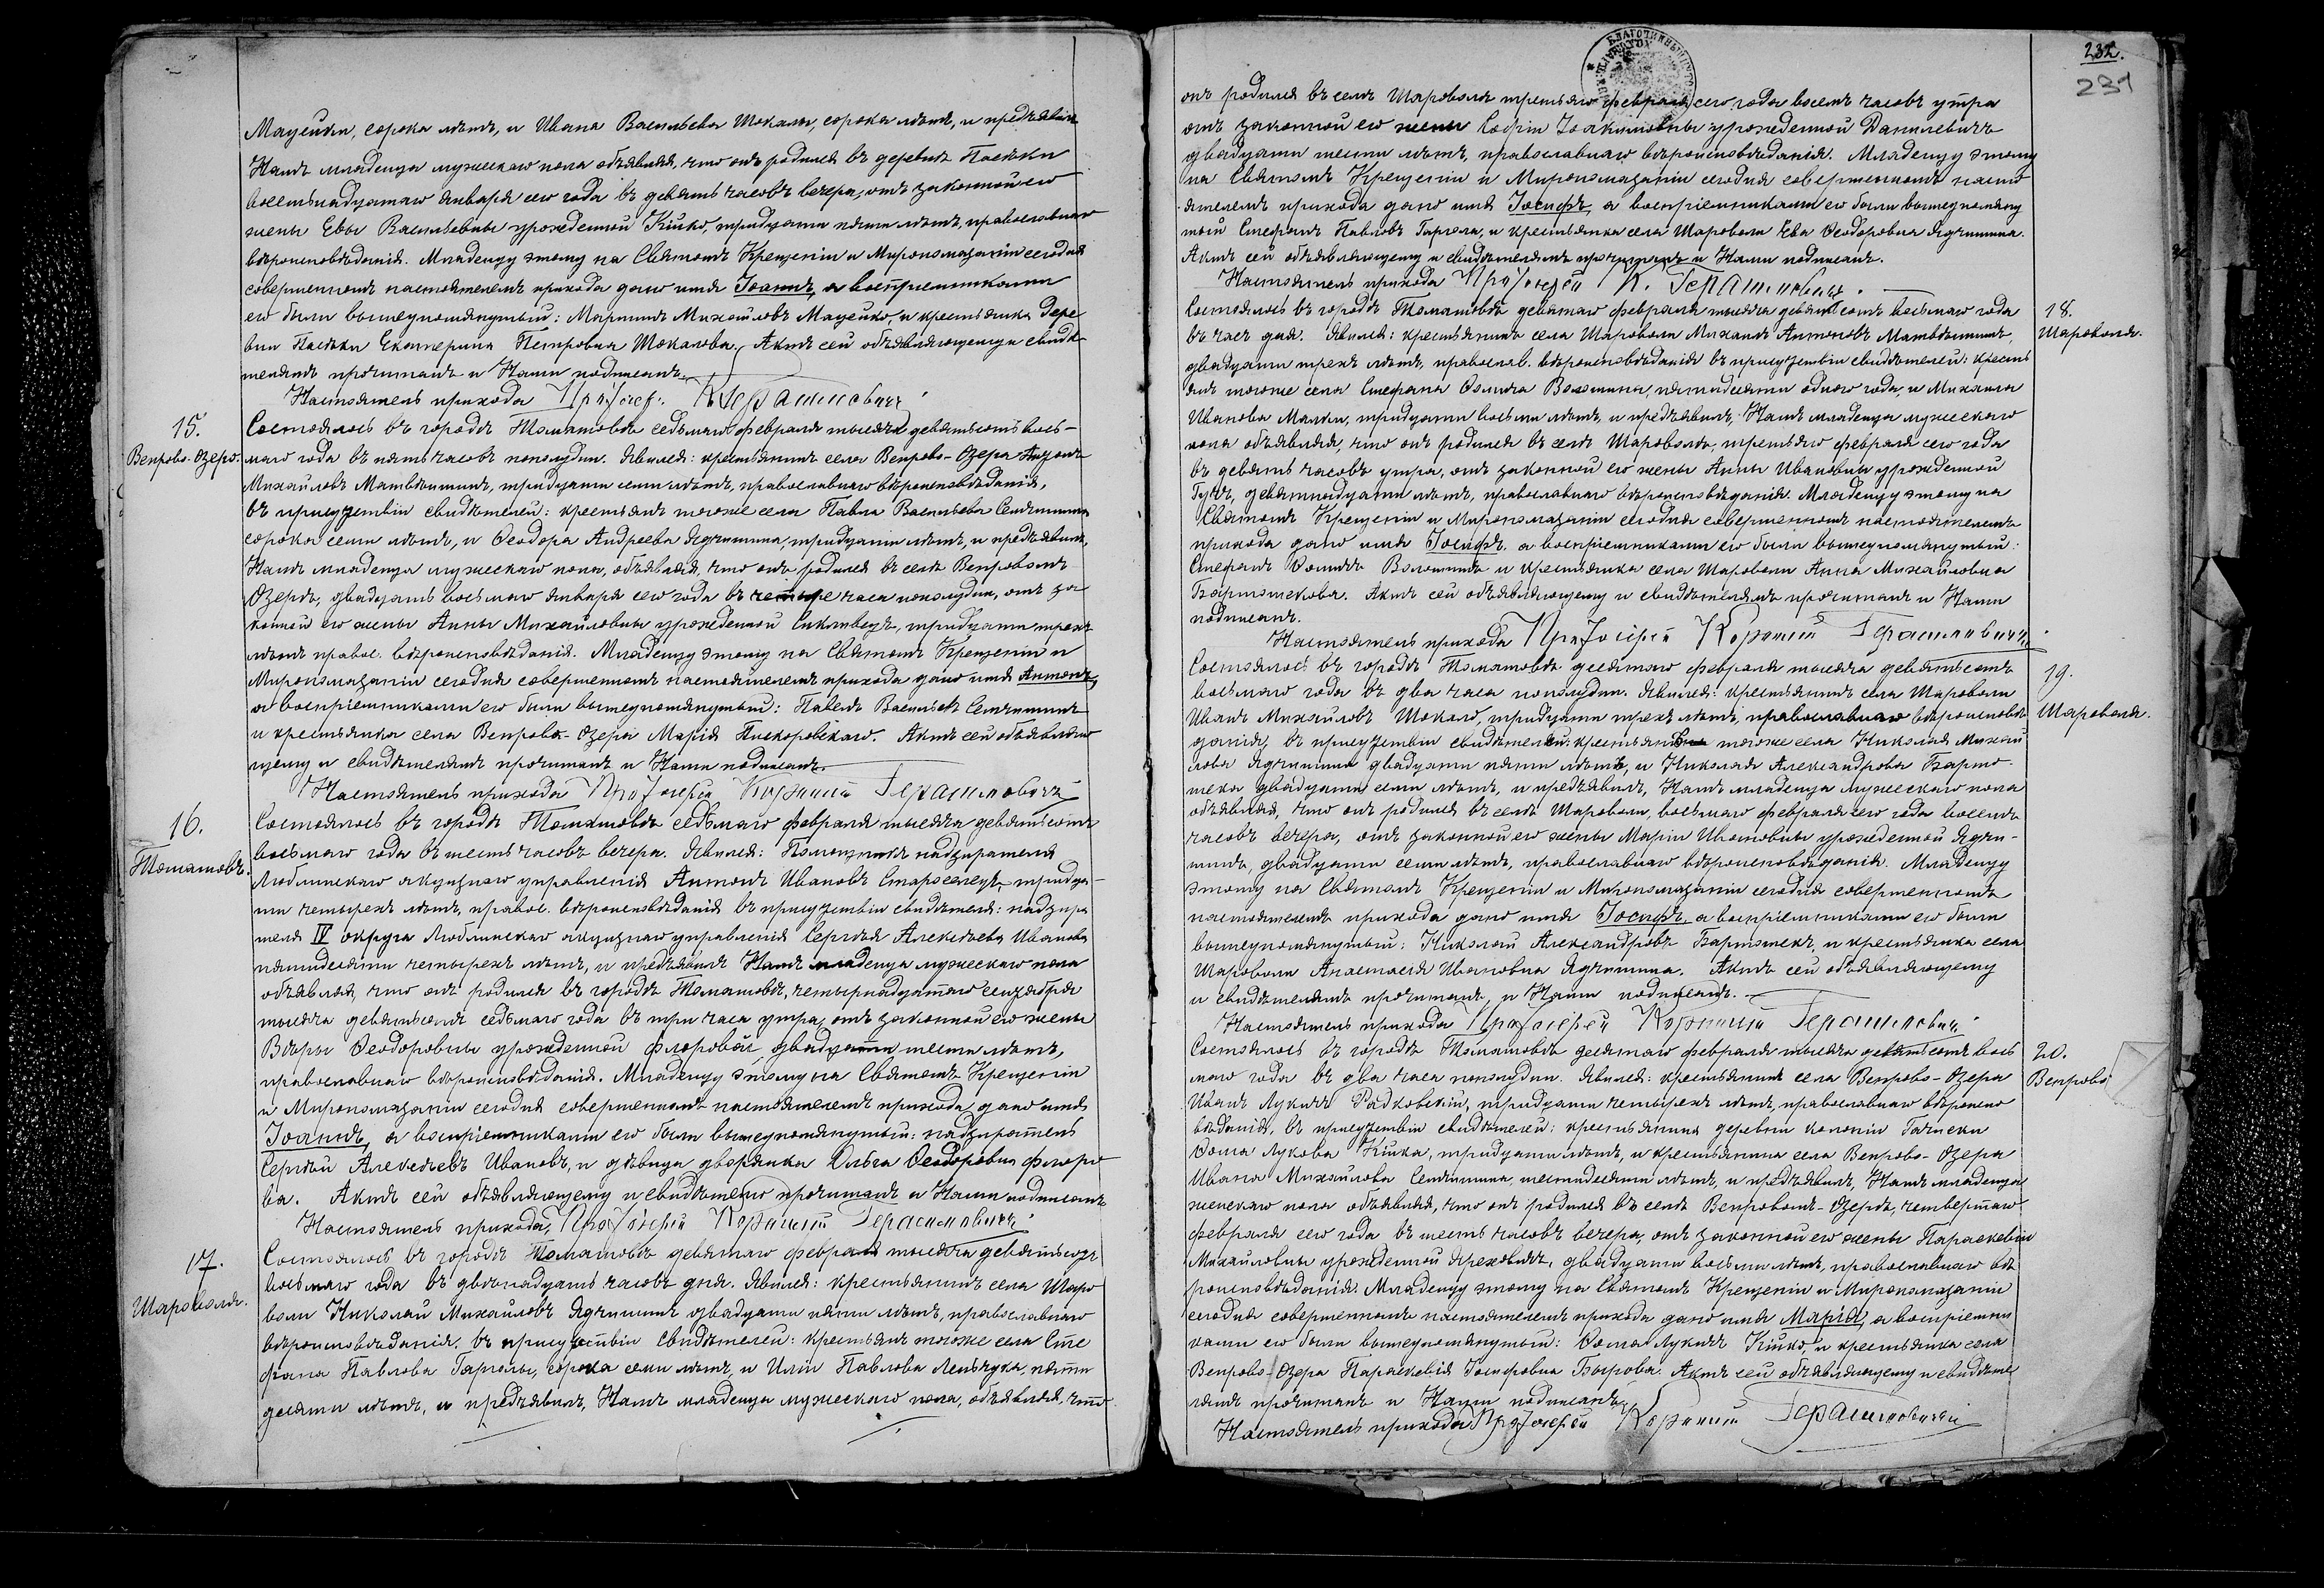 Мацейки, сорока лѣтъ, и Ивана Васильева Шокалы, сорока лѣтъ, и предъявилъ
Намъ младенца мужескаго пола объявляя, что онъ родился въ деревнѣ Пасѣки
восемнадцатаго января сего года въ девять часовъ вечера, отъ законной его
жены Евы Васильевны урожденной Кицко, тридцати пяти лѣтъ, православнаго
вѣроисповѣданія. Младенцу этому на Святомъ Крещеніи и Миропомазаніи сегодня
совершенномъ настоятелемъ прихода дано имя Іоаннъ, а воспріемниками
его были вышеупомянутый: Мартинъ Михайловъ Мацейко, и крестьянка дере
вни Пасѣки Екатерина Петровна Шокалова. Актъ сей объявляющему и свидѣ
телямъ прочитанъ и Нами подписанъ.
Настоятель прихода Протоіер. К Герасимовичъ
15.
Венрово-Озеро.
Состоялось въ городѣ Томашовѣ седьмаго февраля тысяча девятьсотъ вось-
маго года въ пять часовъ пополудни. Явился: крестьянинъ села Венрово-Озера Антонъ
Михайловъ Матвѣишинъ, тридцати семи лѣтъ, православнаго вѣроисповѣданія,
въ присутствіи свидѣтелей: крестьянъ тогоже села Павла Васильева Сенчишина
сорока семи лѣтъ, и Ѳеодора Андреева Ядчишина, тридцати лѣтъ, и предъявилъ,
Намъ младенца мужескаго пола, объявляя, что онъ родился въ селѣ Венровомъ
Озерѣ, двадцать восьмаго января сего года въ четыре часа пополудни, отъ за
конной его жены Анны Михайловны урожденной тридцати трехъ
лѣтъ правос. вѣроисповѣданія. Младенцу этому на Святомъ Крещеніи и
Миропомазаніи сегодня совершенномъ настоятелемъ прихода дано имя Антонъ,
а воспріемниками его были вышеупомянутый: Павелъ Васильевъ Сенчишинъ
и крестьянка села Венрово-Озера Марія Пискоровскаго. Актъ сей объявляю
щему и свидѣтелямъ прочитанъ и Нами подписанъ.
Настоятель прихода Протоіерей Корнилій Герасимовичъ
16.
Томашовъ.
Состоялось въ городѣ Томашовѣ седьмаго февраля тысяча девятьсотъ
восьмаго года въ шесть часовъ вечера. Явился: Помощникъ надзирателя
Люблинскаго акцизнаго управленія Антонъ Ивановъ Старосѣлецъ, тридца-
ти четырехъ лѣтъ, правос. вѣроисповѣданія въ присутствіи свидѣтеля: надзира
теля IV округа Люблинскаго акцизнаго управленія Сергѣя Алексѣева Иванова
пятидесяти четырехъ лѣтъ, и предъявилъ Намъ младенца мужескаго пола
объявляя, что онъ родился въ городѣ Томашовѣ, четырнадцатаго сентября
тысяча девятьсотъ седьмаго года въ три часа утра, отъ законной его жены
Вѣры Ѳеодоровны урожденной Флоровой, двадцати шести лѣтъ,
православнаго вѣроисповѣданія. Младенцу этому на Святомъ Крещеніи
и Миропомазаніи сегодня совершенномъ настоятелемъ прихода дано имя
Іоаннъ, а воспріемниками его были вышеупомянутый: надзиратель
Сергѣй Алексѣевъ Ивановъ, и дѣвица дворянка Ольга Ѳеодоровна Флоро
ва. Актъ сей объявляющему и свидѣтелю прочитанъ и Нами подписанъ
Настоятель прихода, Протоіерей Корнилій Герасимовичъ
17.
Шароволя.
Состоялось въ городѣ Томашовѣ девятаго февраля тысяча девятьсотъ
восьмаго года въ двѣнадцать часовъ дня. Явился: крестьянинъ села Шаро
воли Николай Михайловъ Ядчишинъ двадцати пяти лѣтъ, православнаго
вѣроисповѣданія. въ присутствіи свидѣтелей: крестьянъ тогоже села Сте
фана Павлова Гаргалы, сорока семи лѣтъ, и Иліи Павлова Леньчука, пяти
десяти лѣтъ, и предъявилъ, Намъ младенца мужескаго пола, объявляя, что
232.
231
онъ родился въ селѣ Шароволя третьяго февраля сего года восемь часовъ утра
отъ законной его жены Софіи Іоакимовны урожденной Данилевичъ
двадцати шести лѣтъ, православнаго вѣроисповѣданія. Младенцу этому
на Святомъ Крещеніи и Миропомазаніи сегодня совершенномъ насто
ятелемъ прихода дано имя Іосифъ, а воспріемниками его были вышеупомяну
тый Стефанъ Павловъ Гаргала, и крестьянка села Шароволи Ева Ѳеодоровна Ядчишина.
Актъ сей объявляющему и свидѣтелямъ прочитанъ и Нами подписанъ.
Настоятель прихода Протоіерей К. Герасимовичъ.
18.
Шароволя.
Состоялось въ городѣ Томашовѣ девятаго февраля тысяча девятьсотъ восьмаго года
въ часъ дня. Явился: крестьянинъ села Шароволи Михаилъ Антоновъ Матвѣишинъ,
двадцати трехъ лѣтъ, православ. вѣроисповѣданія въ присутствіи свидѣтелей: кресть
янъ тогоже села Стефана Ѳомича Волошина, пятидесяти одного года, и Михаила
Иванова Малки, тридцати восьми лѣтъ, и предъявилъ, Намъ младенца мужескаго
пола объявляя, что онъ родился въ селѣ Шароволѣ, третьяго февраля сего года
въ девять часовъ утра, отъ законной его жены Анны Ивановны урожденной
Гукъ, девятнадцати лѣтъ, православнаго вѣроисповѣданія. Младенцу этому на
Святомъ Крещеніи и Миропомазаніи сегодня совершенномъ настоятелемъ
прихода дано имя Іосифъ, а воспріемниками его были вышеупомянутый:
Стефанъ Ѳомичъ Волошинъ и крестьянка села Шароволи Анна Михайловна
Бартошекова. Актъ сей объявляющему и свидѣтелямъ прочитанъ и Нами
подписанъ.
Настоятель прихода Протоіерей Корнилій Герасимовичъ.
19.
Шароволя.
Состоялось въ городѣ Томашовѣ десятаго февраля тысяча девятьсотъ
восьмаго года въ два часа пополудни. Явился: крестьянинъ села Шароволи
Иванъ Михайловъ Шокало, тридцати трехъ лѣтъ, православнаго вѣроисповѣ
данія, въ присутствіи свидѣтелей: крестьянъ тогоже села Николая Михай
лова Ядчишина двадцати пяти лѣтъ, и Николая Александрова Барто-
шека двадцати семи лѣтъ, и предъявилъ, Намъ младенца мужескаго пола
объявляя, что онъ родился въ селѣ Шароволи, восьмаго февраля сего года восемь
часовъ вечера, отъ законной его жены Маріи Ивановны урожденной Ядчи-
шинъ, двадцати семи лѣтъ, православнаго вѣроисповѣданія. Младенцу
этому на Святомъ Крещеніи и Миропомазаніи сегодня совершенномъ
настоятелемъ прихода дано имя Іосифъ, а воспріемниками его были
вышеупомянутый: Николай Александровъ Бартошекъ, и крестьянка села
Шароволи Анастасія Ивановна Ядчишина. Актъ сей объявляющему
и свидѣтелямъ прочитанъ, и Нами подписанъ.
Настоятель прихода Протоіерей Корнилій Герасимовичъ.
20.
Венрово
Состоялось въ городѣ Томашовѣ десятаго февраля тысяча девятьсотъ вось
маго года въ два часа пополудни. Явился: крестьянинъ села Венрово-Озера
Иванъ Лукичъ Радковскій, тридцати четырехъ лѣтъ, православнаго вѣроиспо
вѣданія, въ присутствіи свидѣтелей: крестьянина деревни колоніи
Ѳома Лукова Кицка, тридцати лѣтъ, и крестьянина села Венрово-Озера
Ивана Михайлова Сенчишина, шестидесяти лѣтъ, и предъявилъ, Намъ младенца
женскаго пола объявляя, что онъ родился въ селѣ Венровомъ-Озерѣ, четвертаго
февраля сего года въ шесть часовъ вечера, отъ законной его жены Параскевіи
Михайловны урожденной двадцати восьми лѣтъ, православнаго вѣ
роисповѣданія. Младенцу этому на Святомъ Крещеніи и Миропомазаніи
сегодня совершенномъ настоятелемъ прихода дано имя Марія, а воспріемни
ками его были вышеупомянутый: Ѳома Лукичъ Кицко, и крестьянка села
Венрово-Озера Параскевія Іосифовна Бырова. Актъ сей объявляющему и свидѣте
лямъ прочитанъ и Нами подписанъ.
Настоятель прихода Протоіерей Корнилій Герасимовичъ